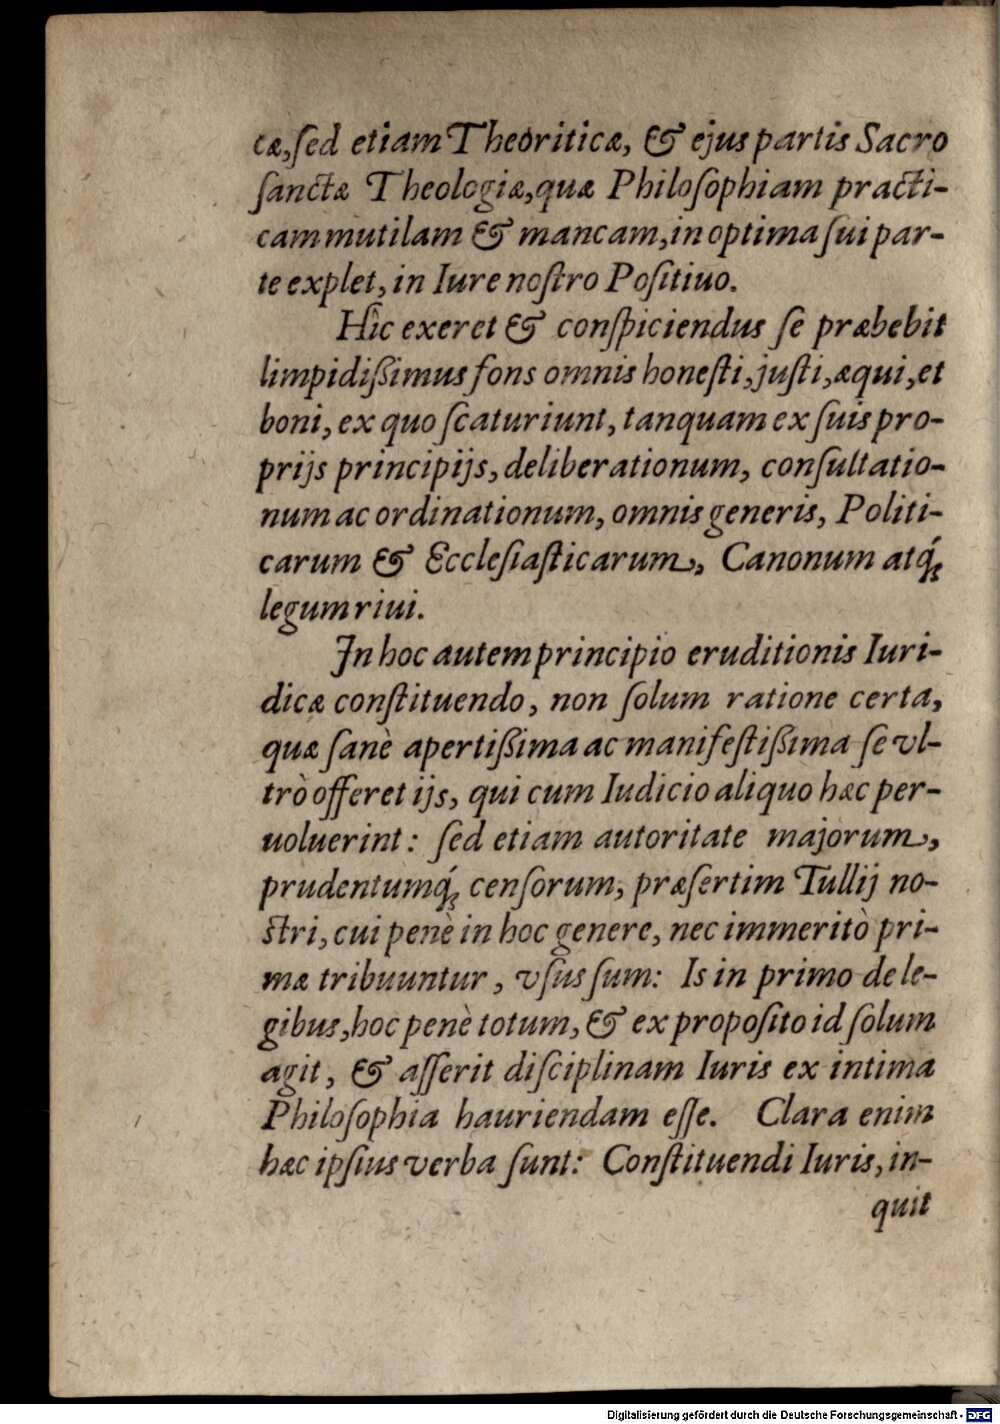 cæ, ſed etiam Theoriticæ, & ejus partis Sacro
ſanctæ Theologiæ, quæ Philoſophiam practi-
cam mutilam & mancam, in optima ſui par-
te explet, in Iure noſtro Poſitiuo.
Hîc exeret & conſpiciendus ſe præbebit
limpidißimus fons omnis honeſti, juſti, æqui, et
boni, ex quo ſcaturiunt, tanquam ex ſuis pro-
prijs principijs, deliberationum, conſultatio-
num ac ordinationum, omnis generis, Politi-
carum & Eccleſiaſticarum, Canonum atq́;
legum riui.
In hoc autem principio eruditionis Iuri-
dicæ conſtituendo, non ſolum ratione certa,
quæ ſanè apertißima ac manifeſtißima ſe vl-
trò offeret ijs, qui cum Iudicio aliquo hæc per-
uoluerint: ſed etiam autoritate majorum,
prudentumq́; cenſorum, præſertim Tullij no-
ſtri, cui penè in hoc genere, nec immeritò pri-
mæ tribuuntur, vſus ſum: Is in primo de le-
gibus, hoc penè totum, & ex propoſito id ſolum
agit, & aſſerit diſciplinam Iuris ex intima
Philoſophia hauriendam eſſe. Clara enim
hæc ipſius verba ſunt: Conſtituendi Iuris, in-
quit
Digitalisierung gefördert durch die Deutsche Forschungsgemeinschaft - DFG